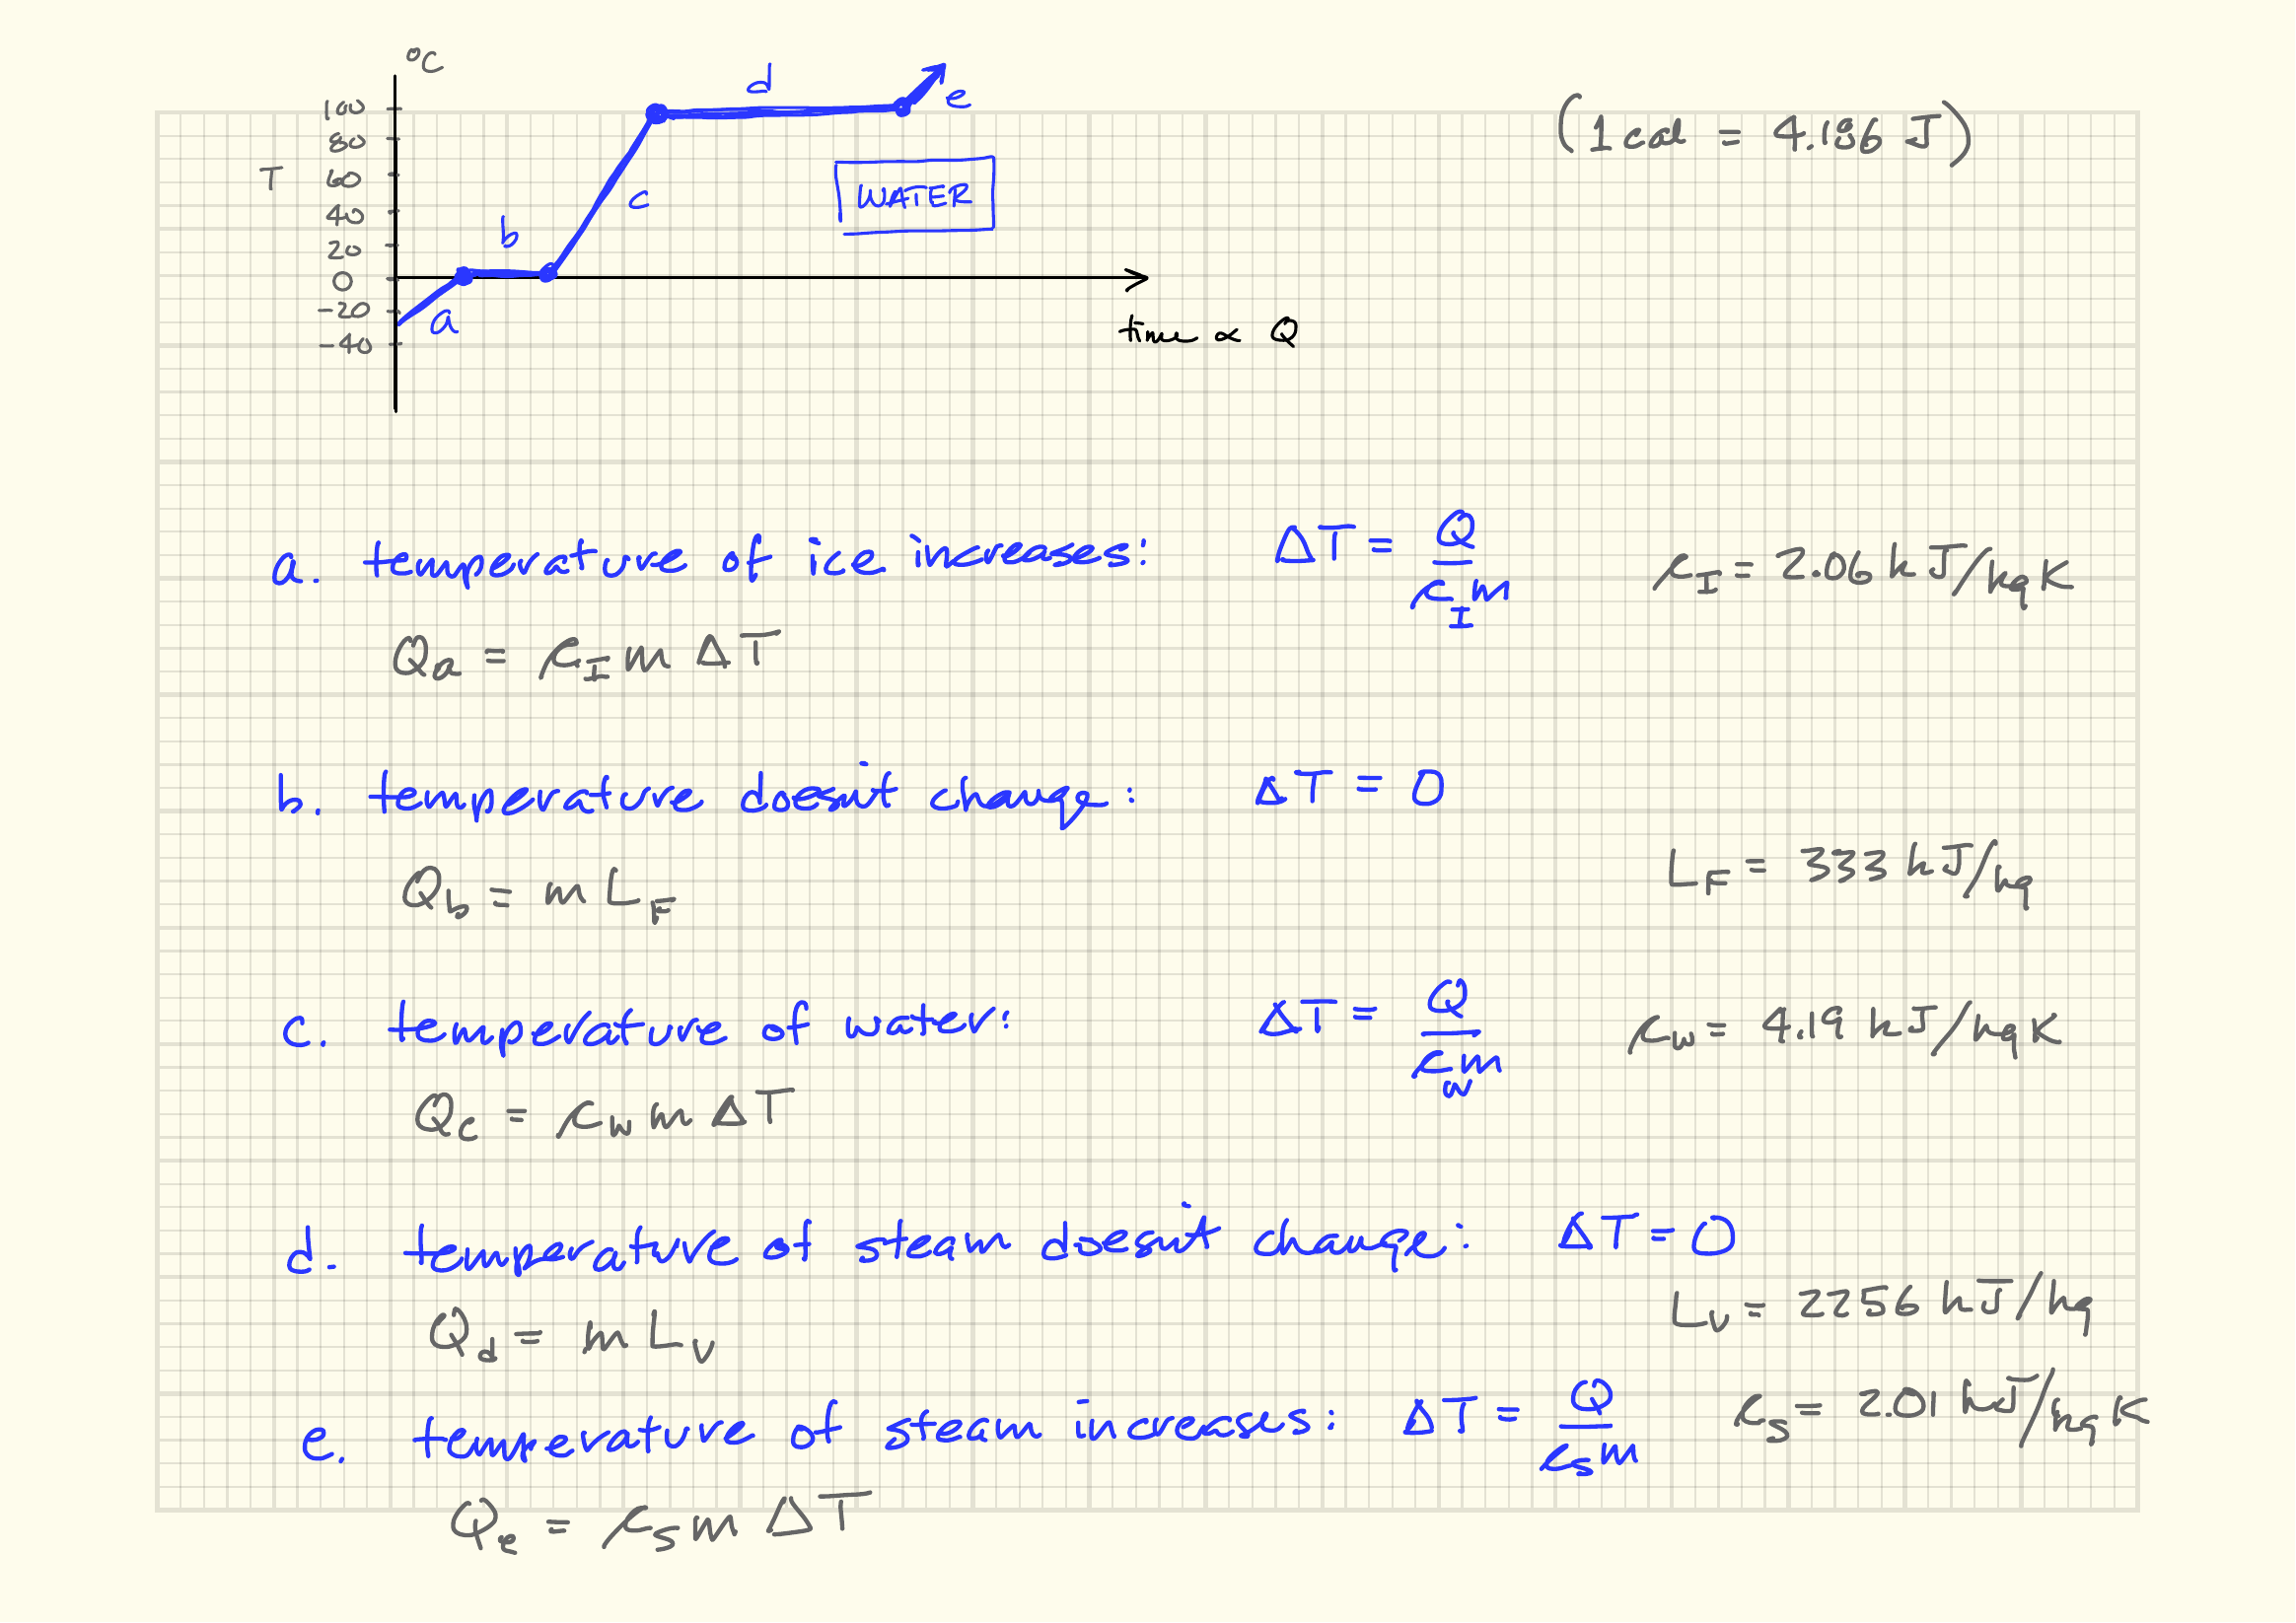 °C
(1 cal = 4.186 J)
100
80
T 60
40
20
0
-20
-40
a
b
c
d
e
WATER
time ∝ Q
a. temperature of ice increases: ΔT = Q / c_I m c_I = 2.06 kJ/kg K
Q_a = c_I m ΔT
b. temperature doesn't change: ΔT = 0
Q_b = m L_F L_F = 333 kJ/kg
c. temperature of water: ΔT = Q / c_w m c_w = 4.19 kJ/kg K
Q_c = c_w m ΔT
d. temperature of steam doesn't change: ΔT = 0
Q_d = m L_V L_V = 2256 kJ/kg
e. temperature of steam increases: ΔT = Q / c_s m c_s = 2.01 kJ/kg K
Q_e = c_s m ΔT